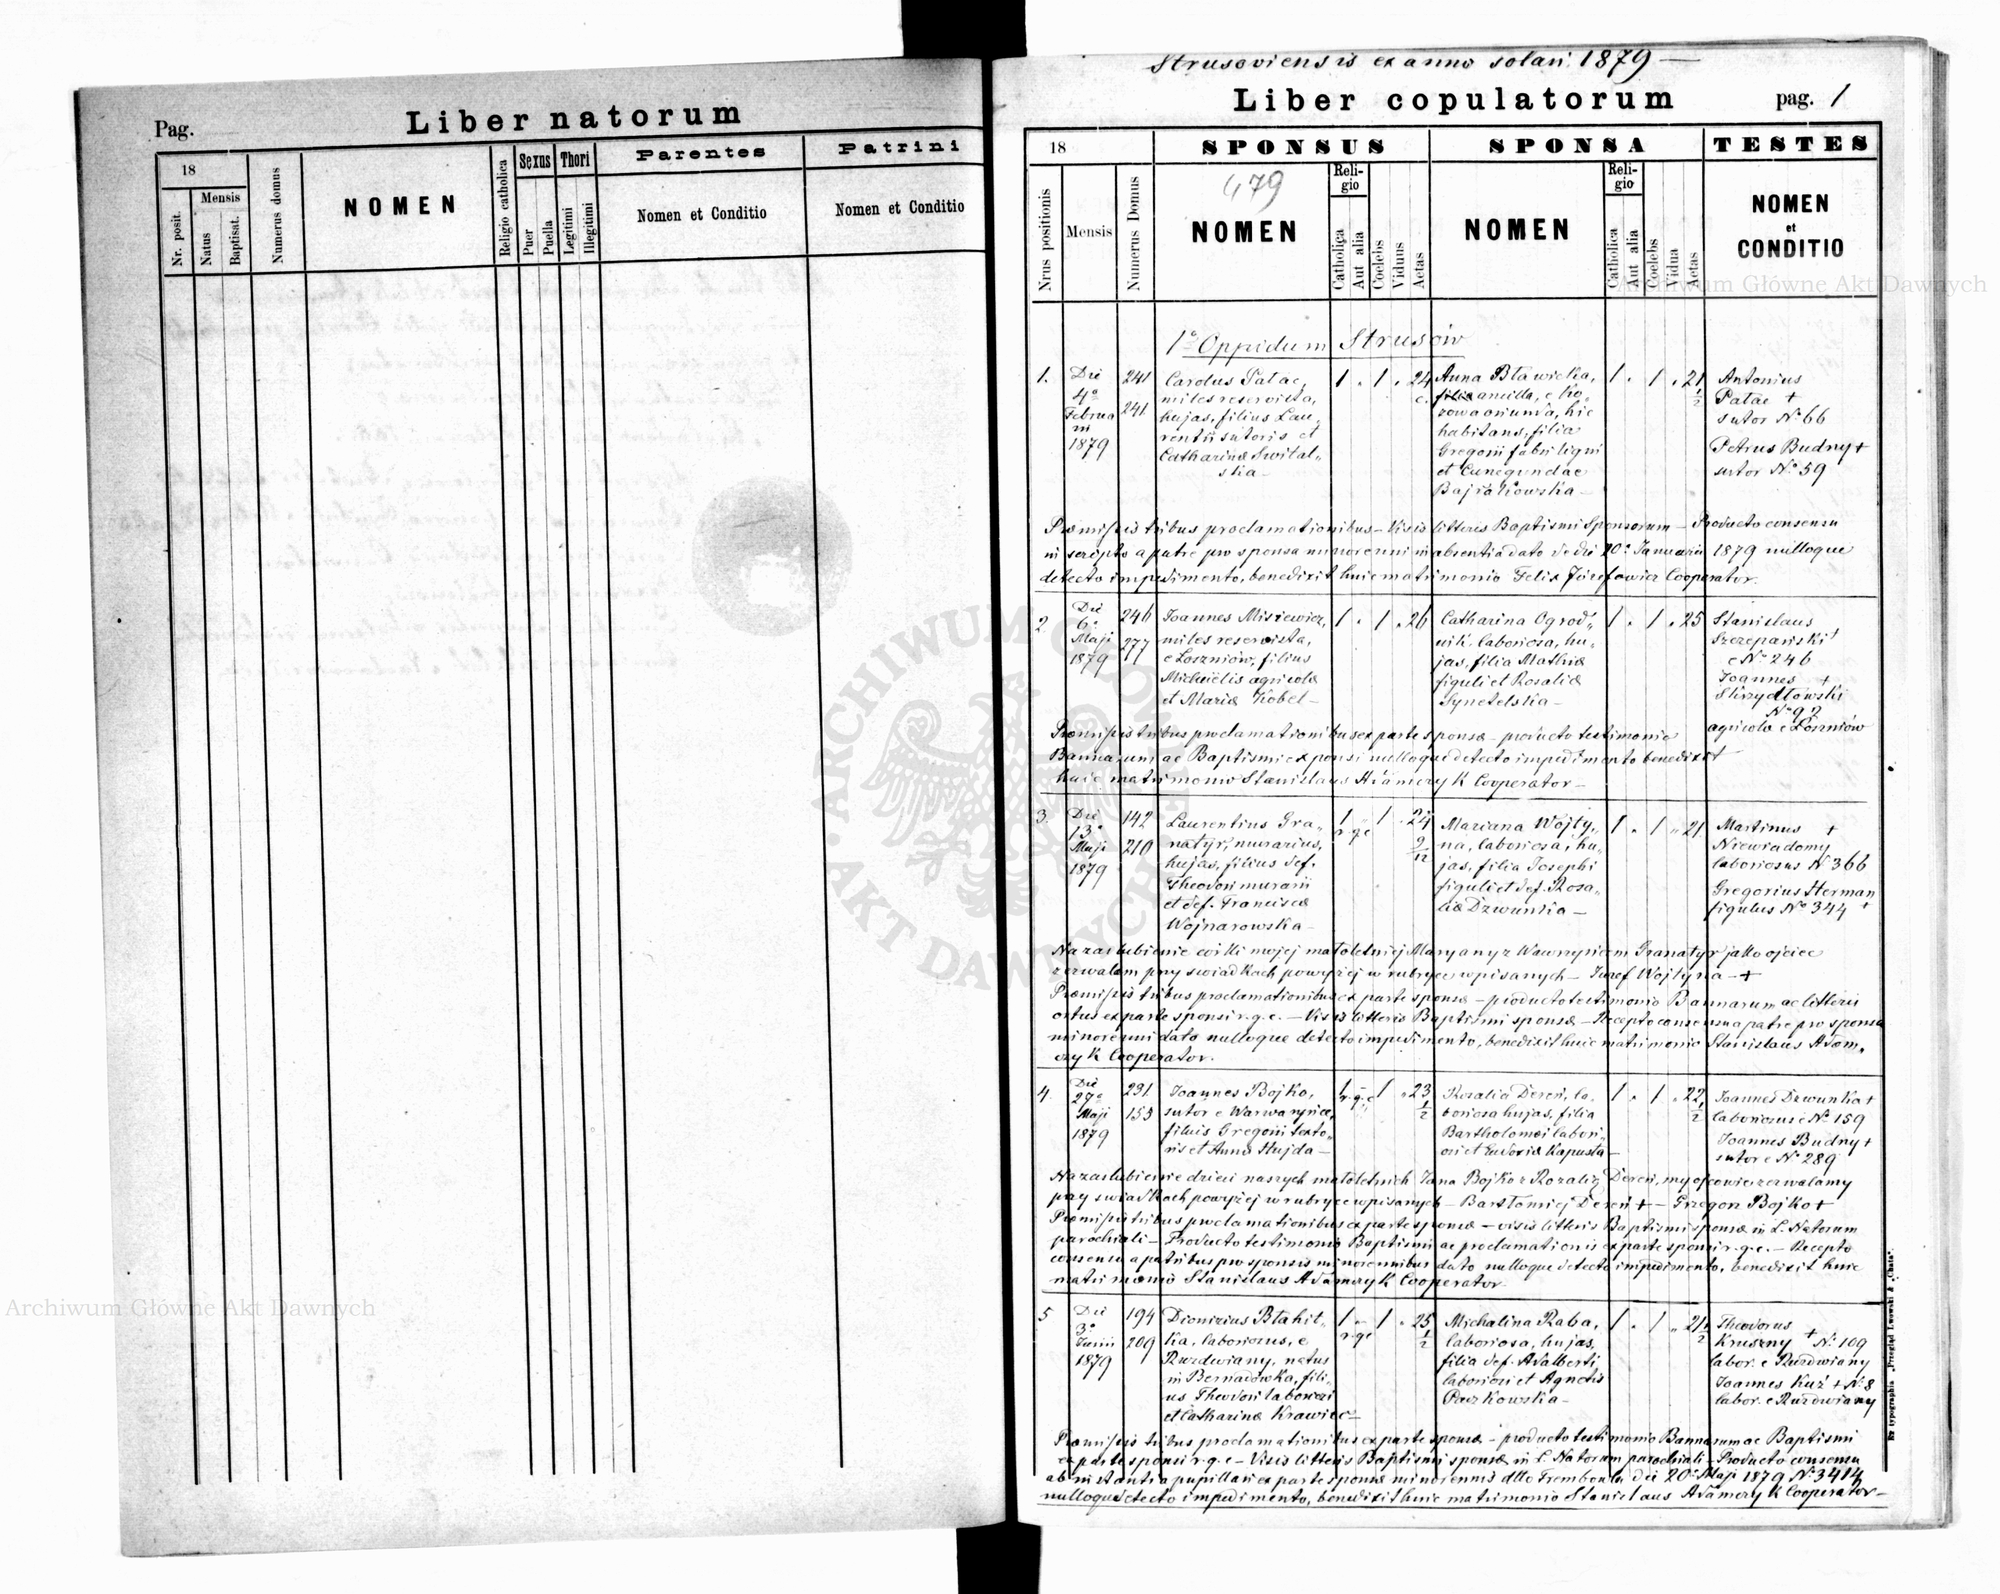 Pag.
Liber natorum
18
Mensis
Nr. posit.
Natus
Baptisat.
Numerus domus
NOMEN
Religio catholica
Sexus
Puer
Puella
Thori
Legitimi
Illegitimi
Parentes
Nomen et Conditio
Patrini
Nomen et Conditio
Strusoviensis ex anno solari 1879 —
Liber copulatorum
pag. 1
18
SPONSUS
SPONSA
TESTES
Nrus positionis
Mensis
Numerus Domus
479
NOMEN
Religio
Catholica
Aut alia
Coelebs
Viduus
Aetas
NOMEN
Religio
Catholica
Aut alia
Coelebs
Vidua
Aetas
NOMEN
et
CONDITIO
1º Oppidum Strusów
1.
Die
4º
Februa
rii
1879
241
241
Carolus Patac,
miles reservista,
hujas, filius Lau„
rentii sutoris et
Catharinæ Śwital„
ska —
1 „ 1 „ 24
Anna Bławicka,
ancilla, e Ko„
zowa oriunda, hic
habitans, filia
Gregorii fabri ligni
et Cunegundae
Bajrakowska —
1 „ 1 „ 21 1/2
Antonius
Patac +
sutor Nº 66
Petrus Budny +
sutor Nº 59
Præmissis tribus proclamationibus — Visis litteris Baptismi Sponsorum — Producto consensu
in scripto a patre pro sponsa minorenni in absentia dato de die 20º Januarii 1879 nulloque
detecto impedimento, benedixit huic matrimonio Felix Józefowicz Cooperator.
2
Die
6º
Maji
1879
246
277
Joannes Misiewicz,
miles reservista,
e Łoszniów, filius
Michaëlis agricolæ
et Mariæ Kobel —
1 „ 1 „ 26
Catharina Ogrod„
nik, laboriosa, hu„
jas, filia Mathiæ
figuli et Rosaliæ
Synetelska —
1 „ 1 „ 25
Stanislaus
Szczepański +
e Nº 246
Joannes +
Skrzydłowski
Nº 92
agricola e Łoszniów
Præmissis tribus proclamationibus ex parte sponsæ — producto testimonio
Bannarum ac Baptismi ex sponsi nulloque detecto impedimento benedixit
huic matrimonio Stanislaus Adamczyk Cooperator —
3.
Die
13º
Maji
1879
142
210
Laurentius Gra„
natyr, murarius,
hujas, filius def.
Theodori murarii
et def. Franciscæ
Wojnarowska —
1 r.g.c 1 „ 24 9/12
Mariana Wojty„
na, laboriosa, hu„
jas, filia Josephi
figuli et def. Rosa„
liæ Dzwunka —
1 „ 1 „ 21
Martinus +
Niewiadomy
laboriosus Nº 366
Gregorius Herman
figulus Nº 344 +
Na zaslubienie córki mojej małoletniej Maryany z Wawrzyńcem Granatyr jako ojciec
zezwalam przy swiadkach powyżej w rubryce wpisanych — Jozef Wojtyna — +
Præmissis tribus proclamationibus ex parte sponsæ — producto testimonio Bannarum ac litteris
ortus ex parte sponsi r.g.c. — Visis litteris Baptismi sponsæ — Recepto consensu a patre pro sponsa
minorenni dato nulloque detecto impedimento, benedixit huic matrimonio Stanislaus Adam„
czyk Cooperator.
4.
Die
27º
Maji
1879
231
155
Joannes Bojko,
sutor e Warwaryńce,
filius Gregorii texto„
ris et Anna Hujda —
1 r.g.c 1 „ 23 1/2
Rozalia Dereń, la„
boriosa hujas, filia
Bartholomæi labori„
osi et Eudoxiæ Kapusta —
1 „ 1 „ 22 1/2
Joannes Dzwunka +
laboriosus e Nº 159
Joannes Budny +
sutor e Nº 289
Na zaslubienie dzieci naszych małoletnich Jana Bojko z Rozalią Dereń, my ojcowie zezwalamy
przy swiadkach powyżej w rubryce wpisanych — Bartłomiej Dereń + — Grzegorz Bojko +
Præmissis tribus proclamationibus ex parte sponsæ — visis litteris Baptismi sponsæ in L. Natorum
parochiali — Producto testimonio Baptismi ac proclamationis ex parte sponsi r.g.c. — Recepto
consensu a patribus pro sponsis minorennibus dato nulloque detecto impedimento, benedixit huic
matrimonio Stanislaus Adamczyk Cooperator.
5
Die
3º
Junii
1879
194
209
Dionizius Błahit„
ka, laboriosus, e
Ruzdwiany, natus
in Bernadówka, fili„
us Theodori laboriosi
et Catharinæ Krawiec —
1 r.g.c 1 „ 25 1/2
Michalina Raba,
laboriosa, hujas,
filia def. Adalberti
laboriosi et Agnetis
Paszkowska —
1 „ 1 „ 21 1/2
Theodorus
Kruszny + Nº 109
labor. e Ruzdwiany
Joannes Kuź + Nº 8
labor. e Ruzdwiany
Præmissis tribus proclamationibus ex parte sponsæ — producto testimonio Bannarum ac Baptismi
ex parte sponsi r.g.c — Visis litteris Baptismi sponsæ in L. Natorum parochiali — Producto consensu
ab instantia pupillari ex parte sponsæ minorennis dtto Trembowla die 20º Maji 1879 Nº 3414
nulloque detecto impedimento, benedixit huic matrimonio Stanislaus Adamczyk Cooperator —
Ex typographia „Przegląd Lwowski & „Chata“.
Archiwum Główne Akt Dawnych
Archiwum Główne Akt Dawnych
ARCHIWUM GŁÓWNE AKT DAWNYCH